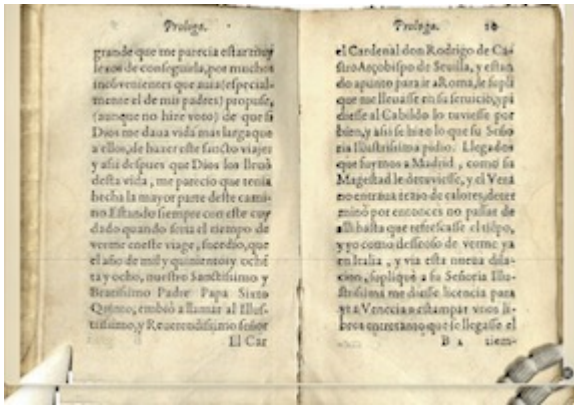 Prologo.
grande que me parecia estar muy
lexos de conseguirla, por muchos
inconvenientes que auia (especial-
mente el de mis padres) propuse,
(aunque no hize voto) de que si
Dios me daua vida mas larga que
a ellos, de hazer este sancto viaje:
y assi despues que Dios los lleuò
desta vida, me parecio que tenia
hecha la mayor parte deste cami-
no. Estando siempre con este cuy
dado quando seria el tiempo de
verme en este viage, sucedio, que
el año de mil y quinientos y ochē
ta y ocho, nuestro Sanctissimo y
Beatissimo Padre Papa Sixto
Quinto, embiò a llamar al Illus-
trissimo, y Reuerendissimo señor
El Car
Prologo. 10
el Cardenal don Rodrigo de Ca-
stro Arçobispo de Seuilla, y estan
do a punto para ir a Roma, le supli
que me lleuasse en su seruicio, y pi
diesse al Cabildo lo tuuiesse por
bien, y assi se hizo lo que su Seño
ria Illustrissima pidio. Llegados
que fuymos a Madrid, como su
Magestad le detuuiesse, y el Vera
no entraua deter
minò por entonces no passar de
alli hasta que refrescasse el tiēpo,
y yo como desseoso de verme ya
en Italia, y via esta nueua dila-
cion, supliquè a su Señoria Illu-
strissima me diesse licencia para
yr a Venecia a estampar vnos li-
bros entretanto que se llegasse el
B 2 tiem-